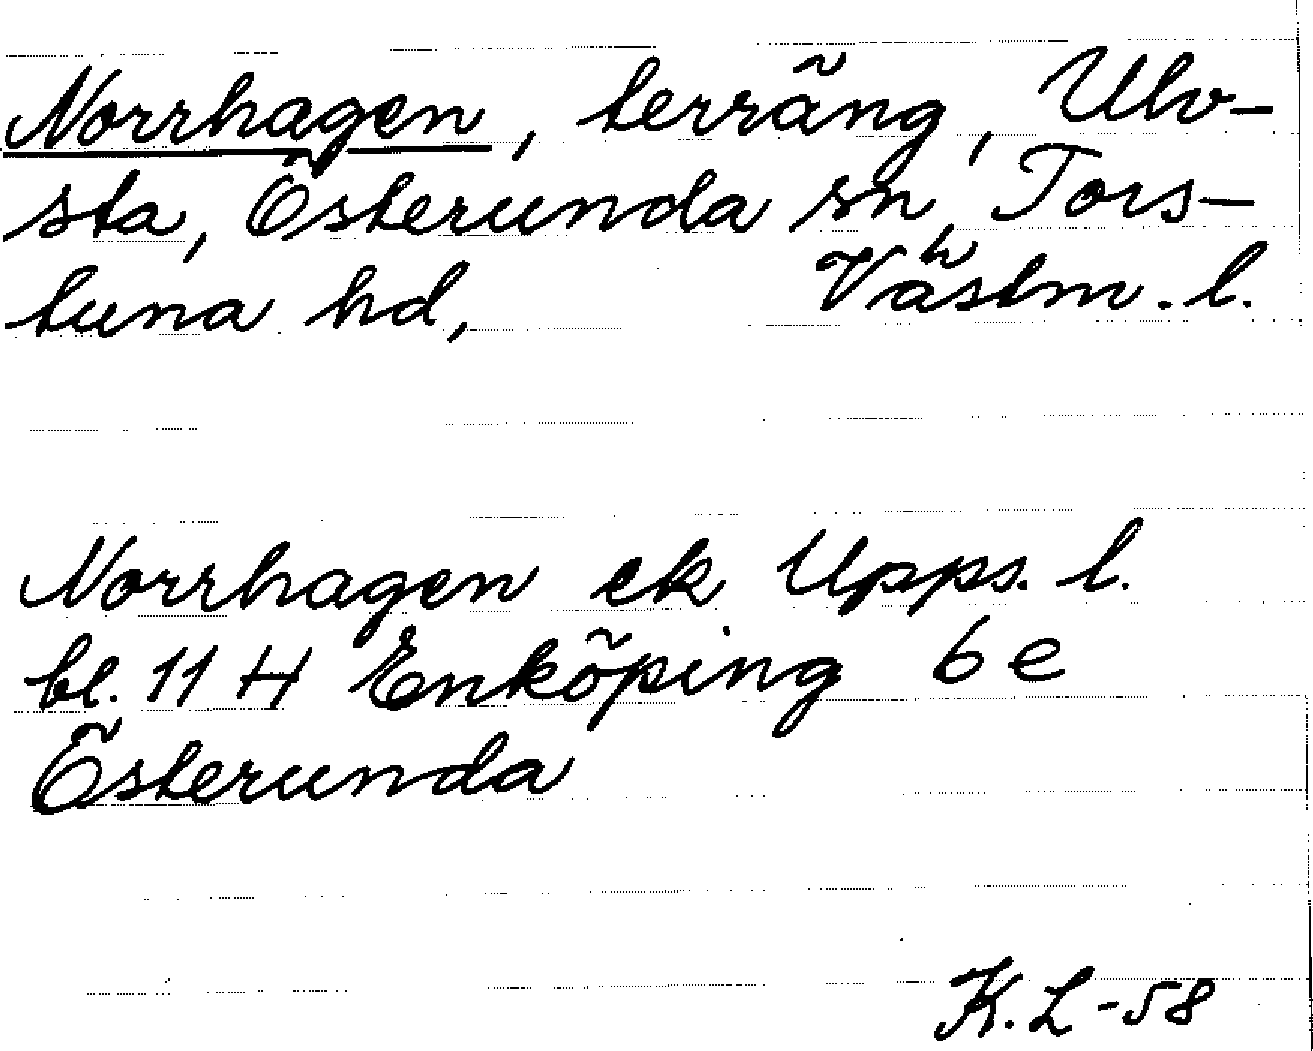 Norrhagen, terräng, Ulv-
sta, Österunda sn, Tors-
tuna hd, Västm. l.
Norrhagen ek Upps. l.
bl. 11 H Enköping 6 e
Österunda
K. L -58